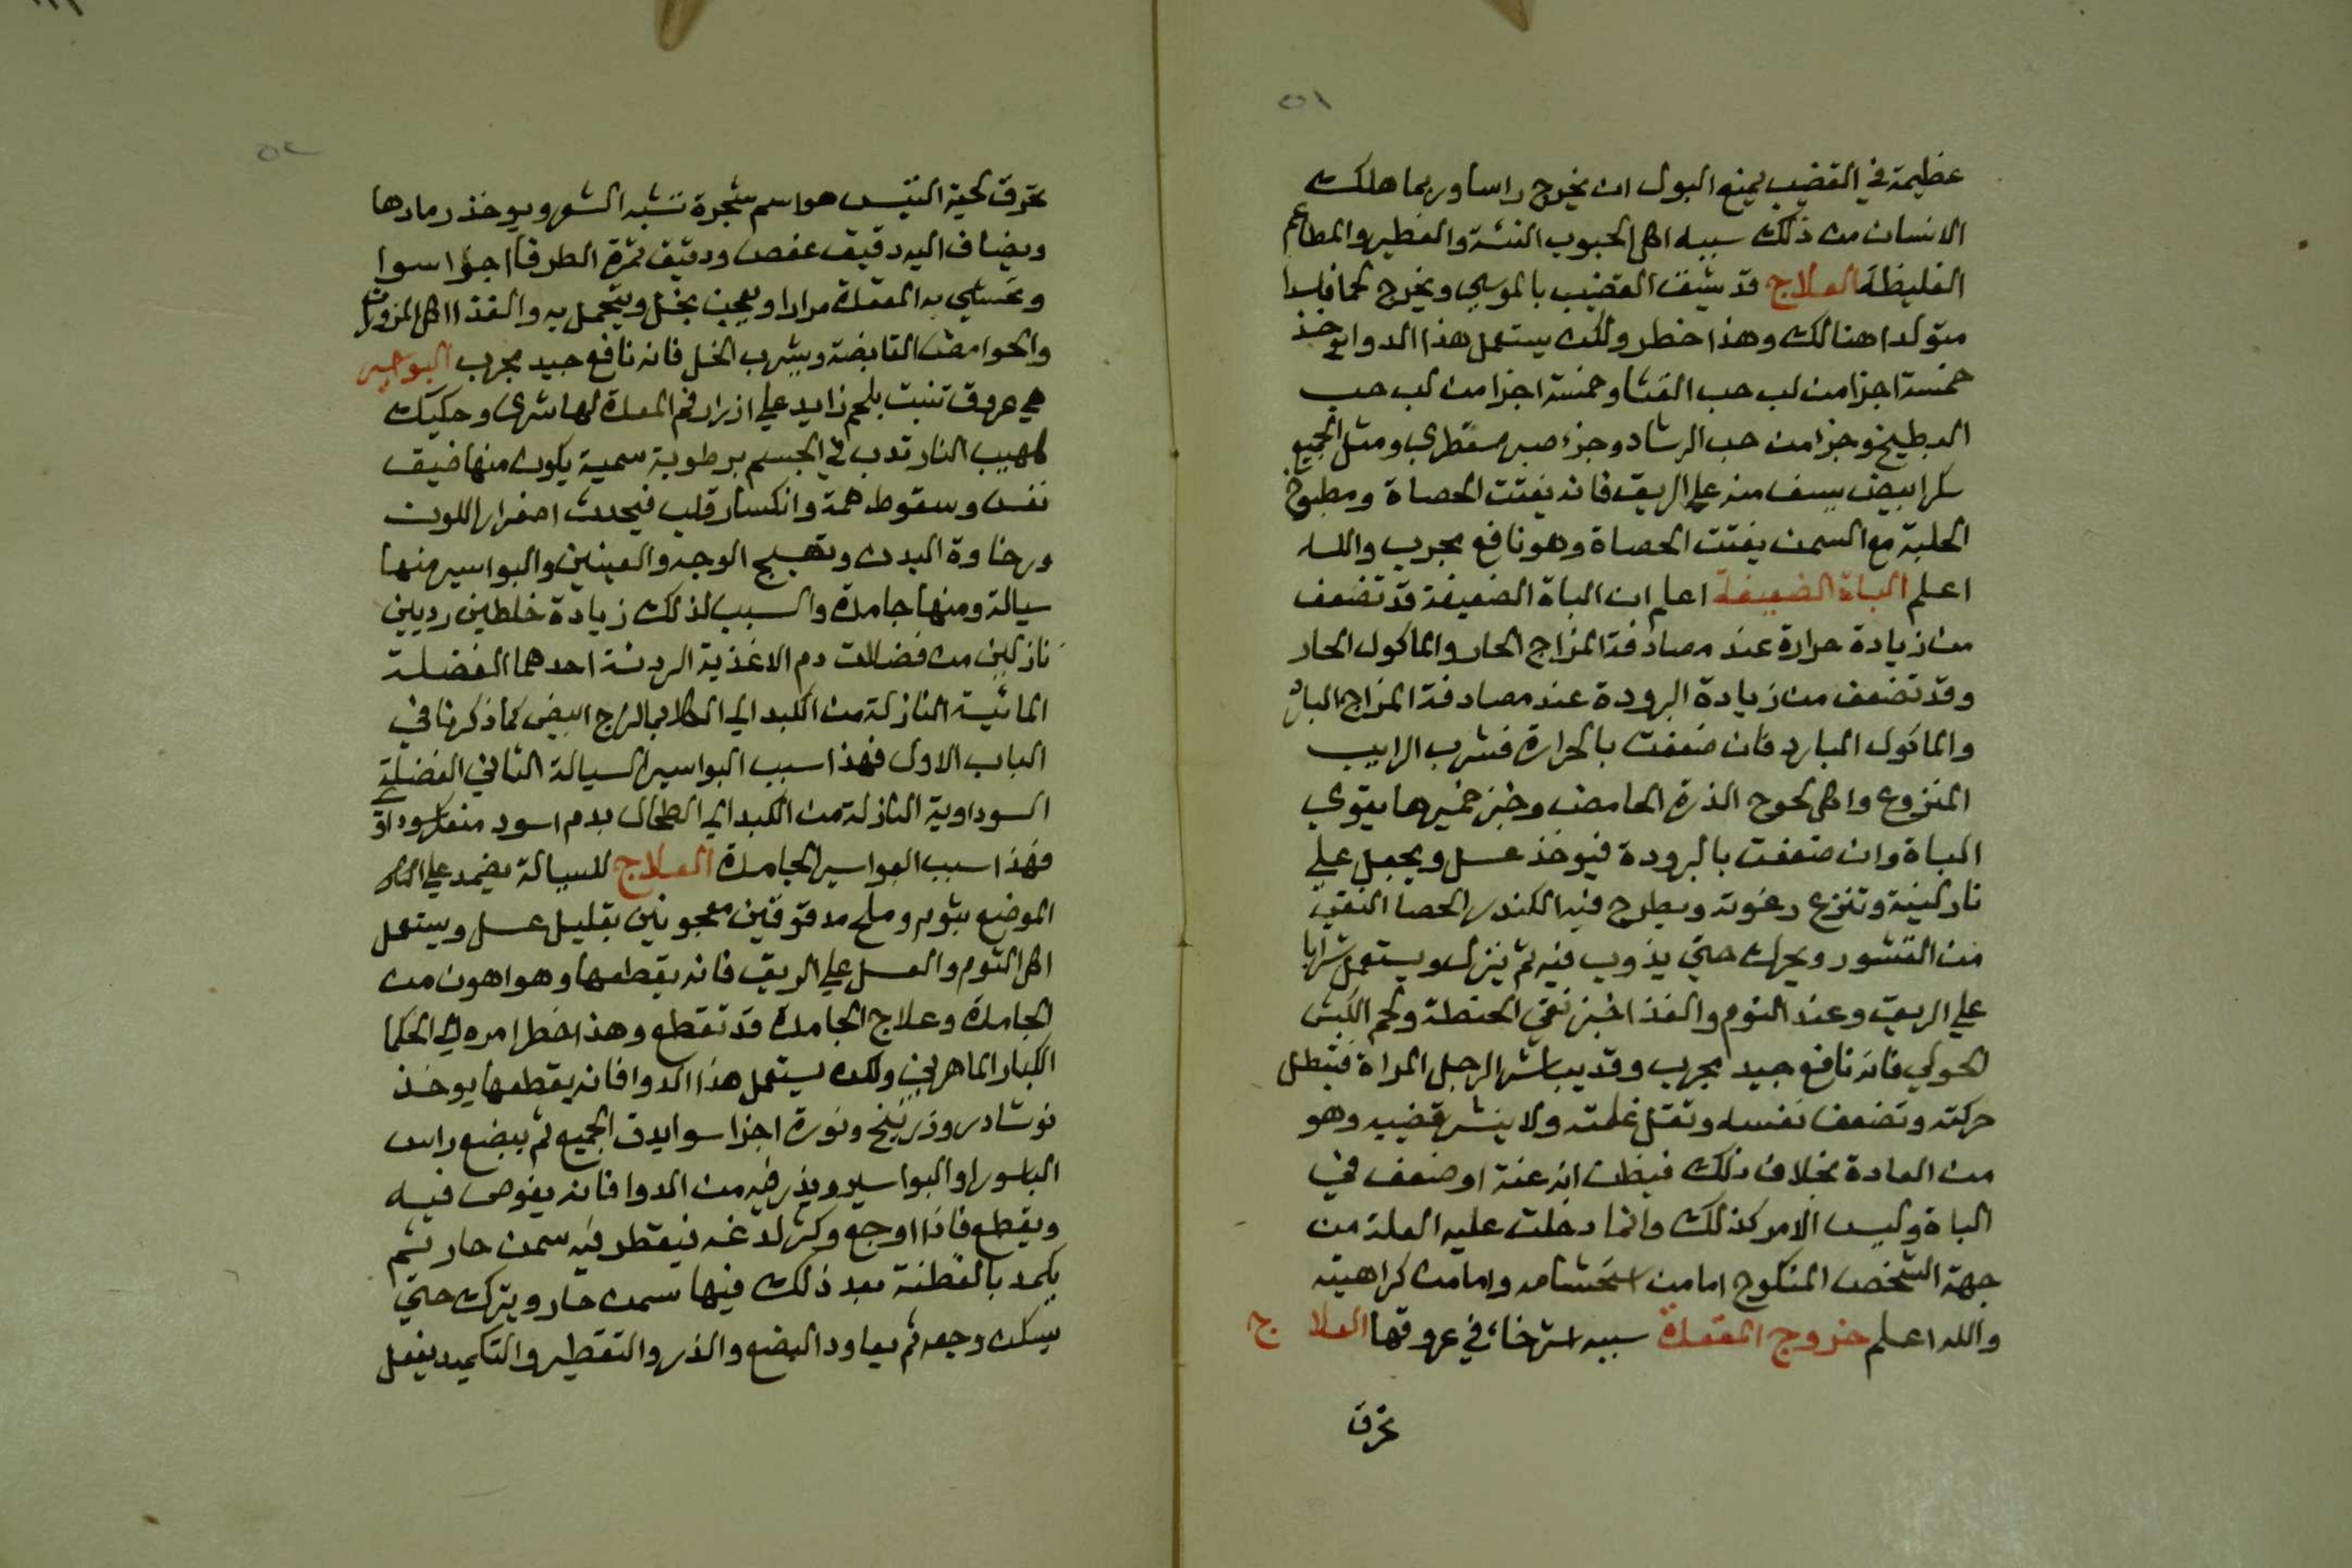 ٥١
عظيمة في القضيب يمنع البول ان يخرج راسا وربما هلك
الانسان من ذلك سببه اكل الحبوب النئة والفطير والمطاعم
الغليظة العلاج قد يشق القضيب بالموسى ويخرج لحما فاسدا
متولدا هنالك وهذا خطر ولكن يستعمل هذا الدوا يوخذ
خمسة اجزا من لب حب القثا وخمسة اجزا من لب حب
البطيخ وجزا من حب الرشاد وجزء صبر سقطري ومثل الجميع
سكر ابيض يسف منه علي الريق فانه يفتت الحصاة ومطبوخ
الحلبة مع السمن يفتت الحصاة وهو نافع مجرب والله
اعلم الباة الضعيفة اعلم ان الباة الضعيفة قد تضعف
من زيادة حرارة عند مصادفة المزاج الحار والماكول الحار
وقد تضعف من زيادة البرودة عند مصادفة المزاج البارد
والماكول البارد فان ضعفت بالحرارة فشرب الرايب
المنزوع واكل لحوح الذرة الحامض وخبز خميرها يقوي
الباة وان ضعفت بالبرودة فيوخذ عسل ويجعل علي
نار لينة وتنزع رغوته ويطرح فيه الكندر الحصا النقي
من القشور ويحرك حتي يذوب فيه ثم ينزل ويستعمل شرابا
علي الريق وعند النوم والغذا خبز نقي الحنطة ولحم الكبش
الحولي فانه نافع جيد مجرب وقد يباشر الرجل المراة فتبطل
حركته وتضعف نفسه وتقل غلمته ولا ينشر قضيبه وهو
من العادة بخلاف ذلك فيظن انه عنة او ضعف في
الباة وليس الامر كذلك وانما دخلت عليه العلة من
جهة الشخص المنكوح اما من استحشامه واما من كراهيته
والله اعلم خروج المقعدة سببه استرخاء في عروقها العلاج
تحرق
٥٢
تحرق لحية التيس هو اسم شجرة تشبه الشعر ويوخذ رمادها
ويضاف اليه دقيق عفص ودقيق ثمرة الطرفا اجزا سوا
به المقعدة مرارا ويعجن بخل ويتحمل به والغذا اكل المزورات
والحوامض القابضة ويشرب الخل فانه نافع جيد مجرب البواسير
هي عروق تنبت بلحم زايد علي ازرار فم المعدة لها شرى وحكيك
كلهيب النار تدب في الجسم برطوبة سمية يكون منها ضيق
نفس وسقوط همة وانكسار قلب فيحدث اصفرار اللون
ورخاوة البدن وتهيج الوجه والعينين والبواسير منها
سيالة ومنها جامدة والسبب لذلك زيادة خلطين رديين
نازلين من فضلات دم الاغذية الردئة احدهما الفضلة
المائية النازلة من الكبد الي الكلا بمالزج ابيض كما ذكرنا في
الباب الاول فهذا سبب البواسير السيالة الثاني الفضلة
السوداوية النازلة من الكبد الي الطحال بدم اسود منعكر سوداوي
فهذا سبب البواسير الجامدة العلاج للسيالة يضمد علي
الموضع بثوم وملح مدقوقين معجونين بقليل عسل ويستعمل
اكل الثوم والعسل علي الريق فانه يقطعها وهو اهون من
الجامدة وعلاج الجامدة قد تقطع وهذا خطر امره الي الحكما
الكبار الماهرين ولكن يستعمل هذا الدوا فانه يقطعها يوخذ
نوشادر وزرنيخ ونورة اجزا سوا يدق الجميع ثم يبضع راس
الباسور او البواسير ويذر فيه من الدوا فانه يغوص فيه
ويقطع فاذا اوجع وكثر لدغه فيقطر فيه سمن حار ثم
يكمد بالقطنة بعد ذلك فيها سمن حار ويترك حتي
يسكن وجعه ثم يعاود البضع والذر والتقطير والتكميد يفعل